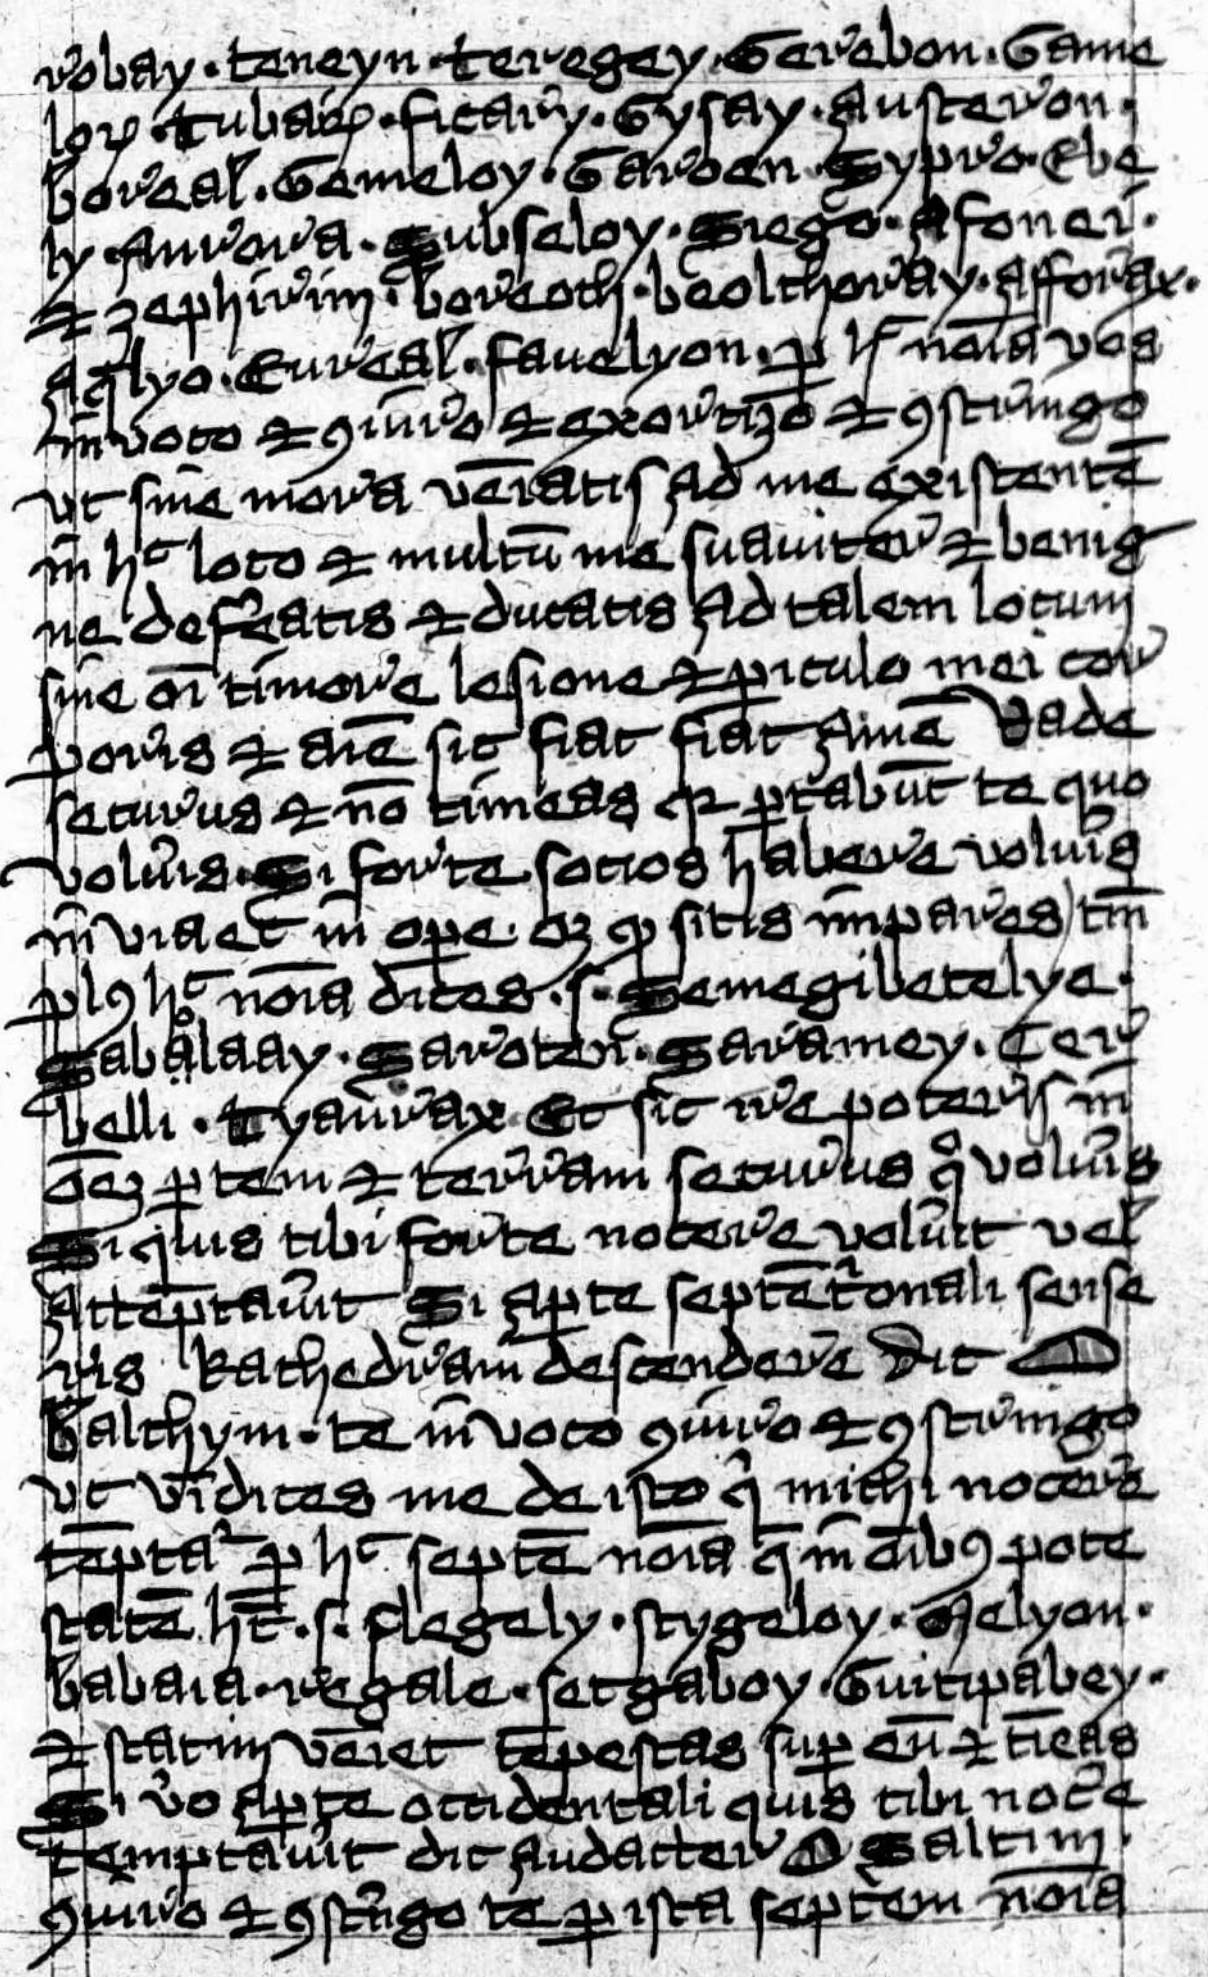 robay · teneyn · teregey · Gerebon · Game
loy · tubairp · ficary · Gysay · Austeron ·
boreal · Gemeloy · Garoen · Sypro · Ebe
ly · Aurora · Subseloy · Siego · Afonei ·
et zephirim · boreoth · beolthoray · Afforax ·
Aqlyo · Eureal · fauelyon · p hͨ noīa vos
īvoco et ꝯiuro et exorcizo et ꝯstringo
vt sine mora veīatis ad me existentē
in hͨ loco et multū me suauiter et benig
ne defeatis et ducatis ad talem locum
sine oī timore lesione et piculo mei cor
poris et aīe sic fiat fiat Amē Vade
securus et nō timeas qz ptabūt te quo
voluis · Si forte socios habere voluis
in via et in ope · oz qp sitis impares tm̄
pl9 hͨ noīa dices · s · Semegibetelye ·
Sabalaay · Saroten · Saramey · Ter
belli · tyaurax Et sic ire poteris in
oēz ptem et terram securus qͦ voluis
Si quis tibi forte nocere voluit vel
Atteptauit Si apte septētonali sense
ris kathedram descendere Dic O
balthym · te īvoco ꝯiuro et ꝯstringo
vt vīdices me de isto qi michi nocere
tēptat p hͨ septē noīa q in oībꝯ pote
statē hēt · s · flegely · stygeloy · Melyon ·
babaia · regale · setgaboy · Guitipabey ·
et statim veīet tēpestas sup eū et tīeas
Si vo apte occidentali quis tibi noce
temptauit dic audacter O Saltim ·
ꝯiuro et ꝯstrigo te p ista septem noīa